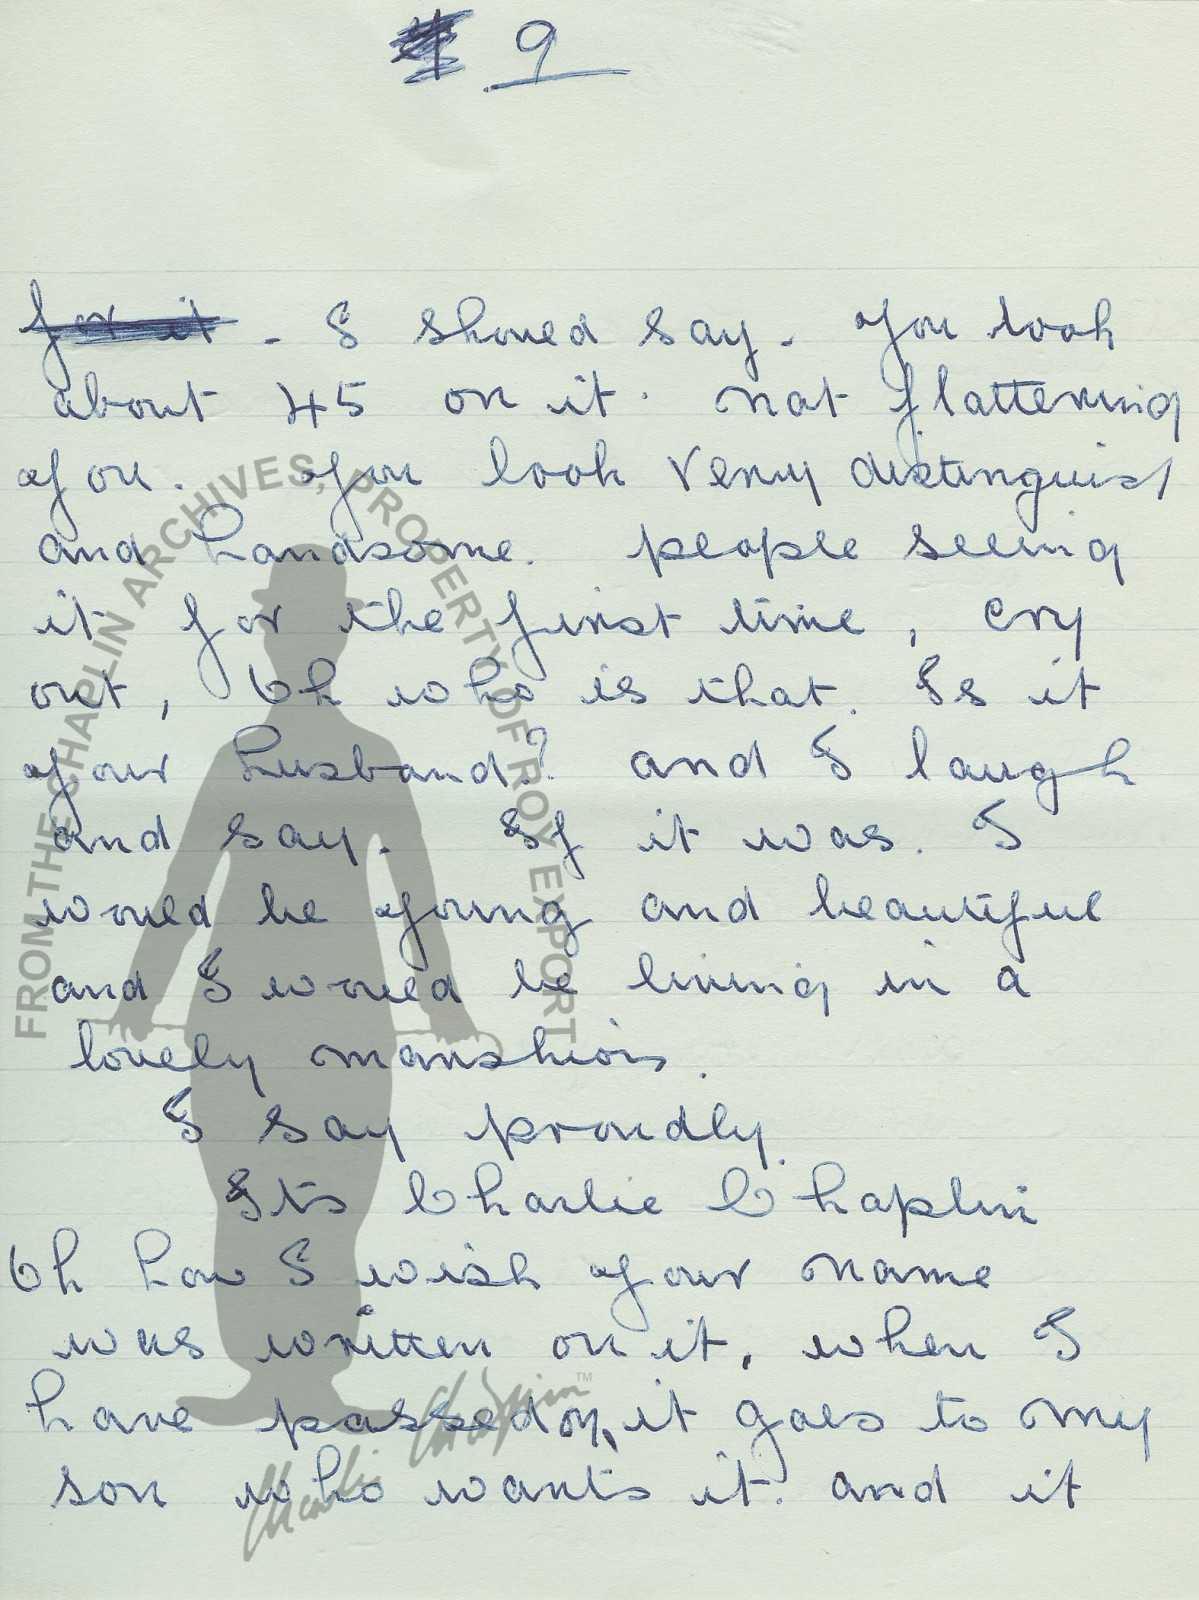 9
for it - I shoued say. you look
about 45 on it. not flattering
you. you look very distinguist
and handsome. people seeing
it for the first time, cry
out, Oh who is that. Is it
your husband? and I laugh
and say. If it was. I
woued be young and beautifue
and I woued be living in a
lovely manshion.
I say proudly.
Its Charlie Chaplin
Oh how I wish your name
was written on it, when I
have passed on, it goes to my
son who wants it. and it
FROM THE CHAPLIN ARCHIVES, PROPERTY OF ROY EXPORT
Charlie Chaplin™